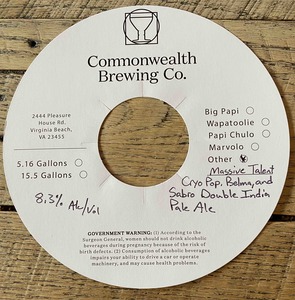 Commonwealth
Brewing Co.
2444 Pleasure
House Rd.
Virginia Beach,
VA 23455
Big Papi
Wapatoolie
Papi Chulo
Marvolo
Other
5.16 Gallons
15.5 Gallons
Massive Talent
Cryo Pop, Belma, and
Sabro Double India
Pale Ale
8.3% Alc/Vol
GOVERNMENT WARNING: (1) According to the
Surgeon General, women should not drink alcoholic
beverages during pregnancy because of the risk of
birth defects. (2) Consumption of alcoholic beverages
impairs your ability to drive a car or operate
machinery, and may cause health problems.